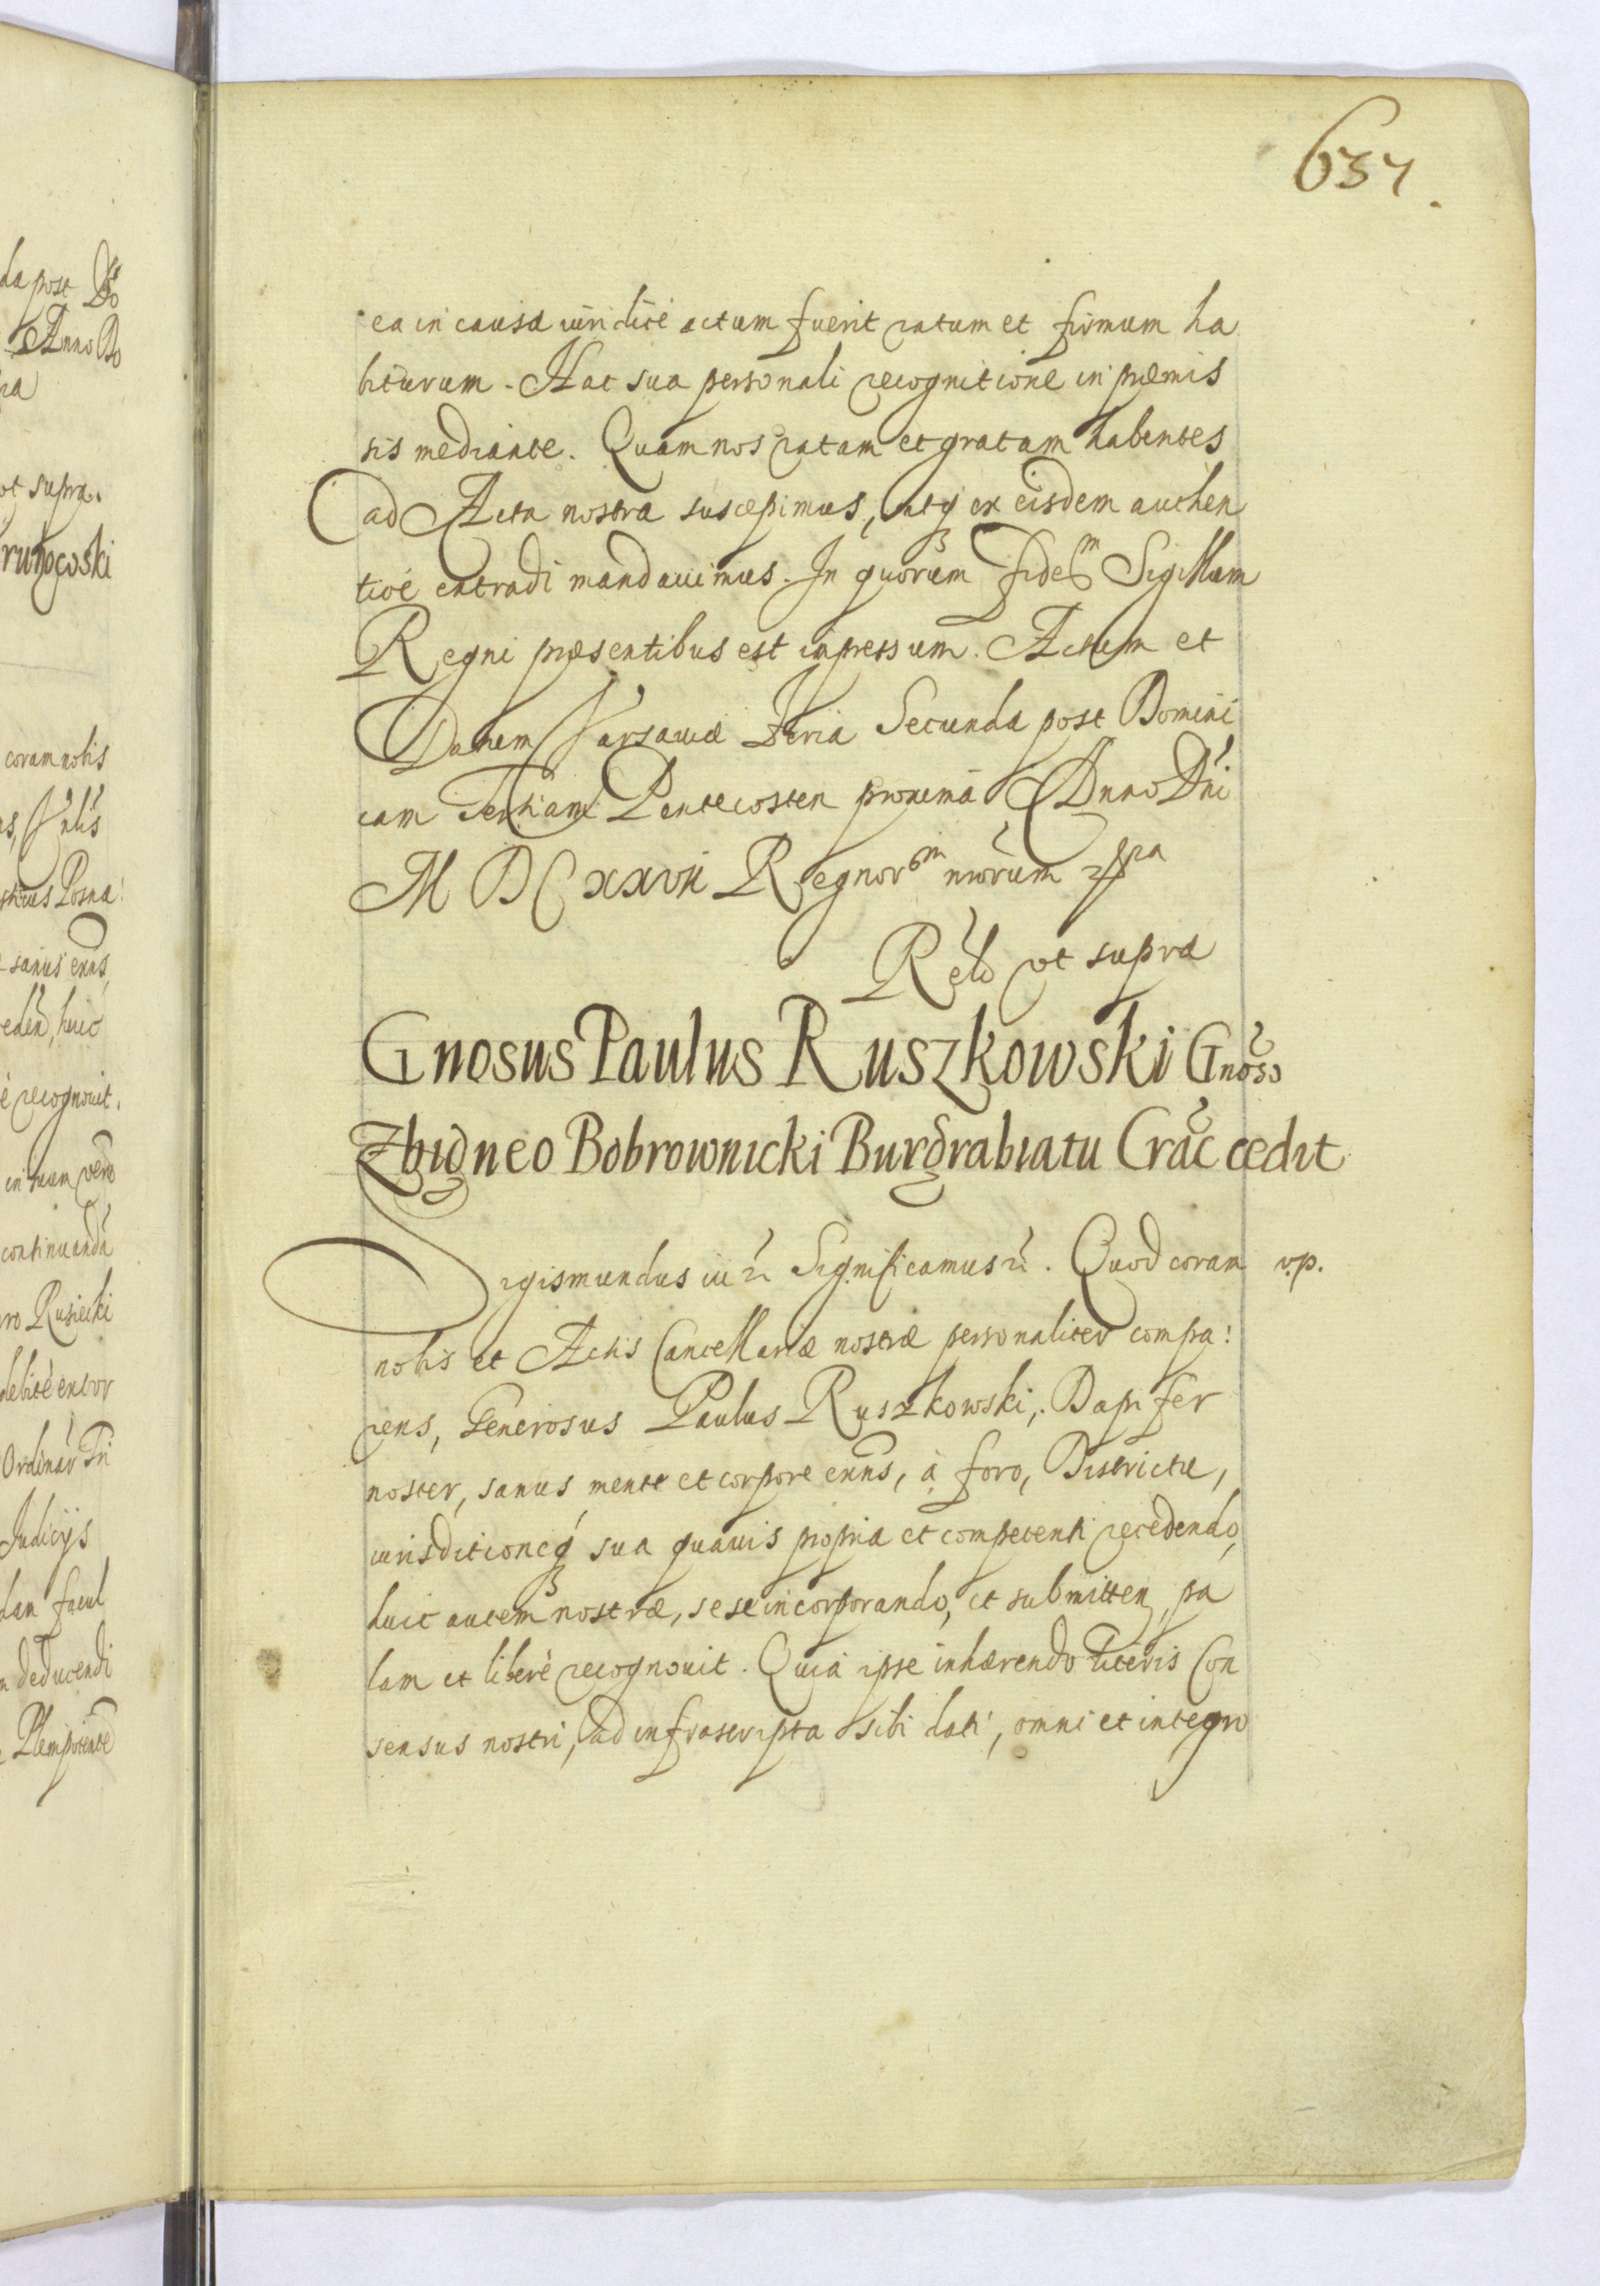 637.
ea in causa iuridicè actum fuerit ratum et firmum ha
biturum. Hac sua personali recognitione in præmis
sis mediante. Quam nos ratam et gratam habentes
ad Acta nostra suscepimus, atq ex eisdem authen
ticè extradi mandauimus. In quorum fidem Sigillum
Regni præsentibus est impressum. Actum et
Datum Varsauiæ Feria Secunda post Domini
cam Tertiam Pentecosten proxima Anno Dñi
M DC XXVII Regnorm nrorum
Relo vt supra
Gnosus Paulus Ruszkowski Gnoso
Zbigneo Bobrownicki Burgrabiatu Crac cedit
Sigismundus iii Significamus. Quod coram v.p.
nobis et Actis Cancellariæ nostræ personaliter compa:
rens, Generosus Paulus Ruszkowski, Dapifer
noster, sanus mente et corpore exns, à foro, Districtu,
iurisditioneq sua quauis propria et competenti recedendo,
huic autem nostræ, sese incorporando, et submitten, pa
lam et liberè recognouit. Quia ipse inhærendo literis Con
sensus nostri, ad infrascripta sibi dati, omni et integro
da post Do
Anno Do
vt supra.
coram nobis
Posna:
sanus exns,
huic
è recognouit.
in suam vero
continuanda
ro Rusiecki
debitè
Ordinar Tri
Judicijs
dan facul
deducendi
Plenipotente